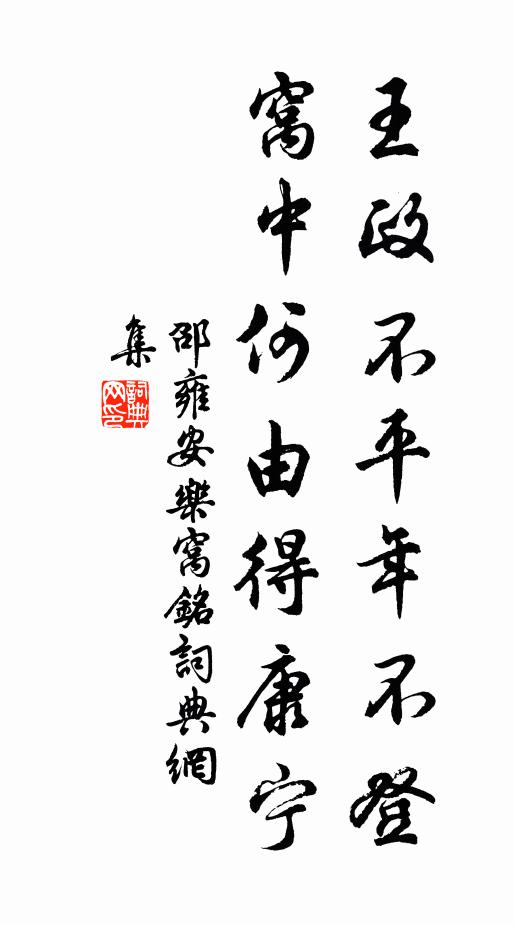 王政不平年不登
窩中何由得康宁
邵雍安樂窩銘詞典網
集
詞典
网印